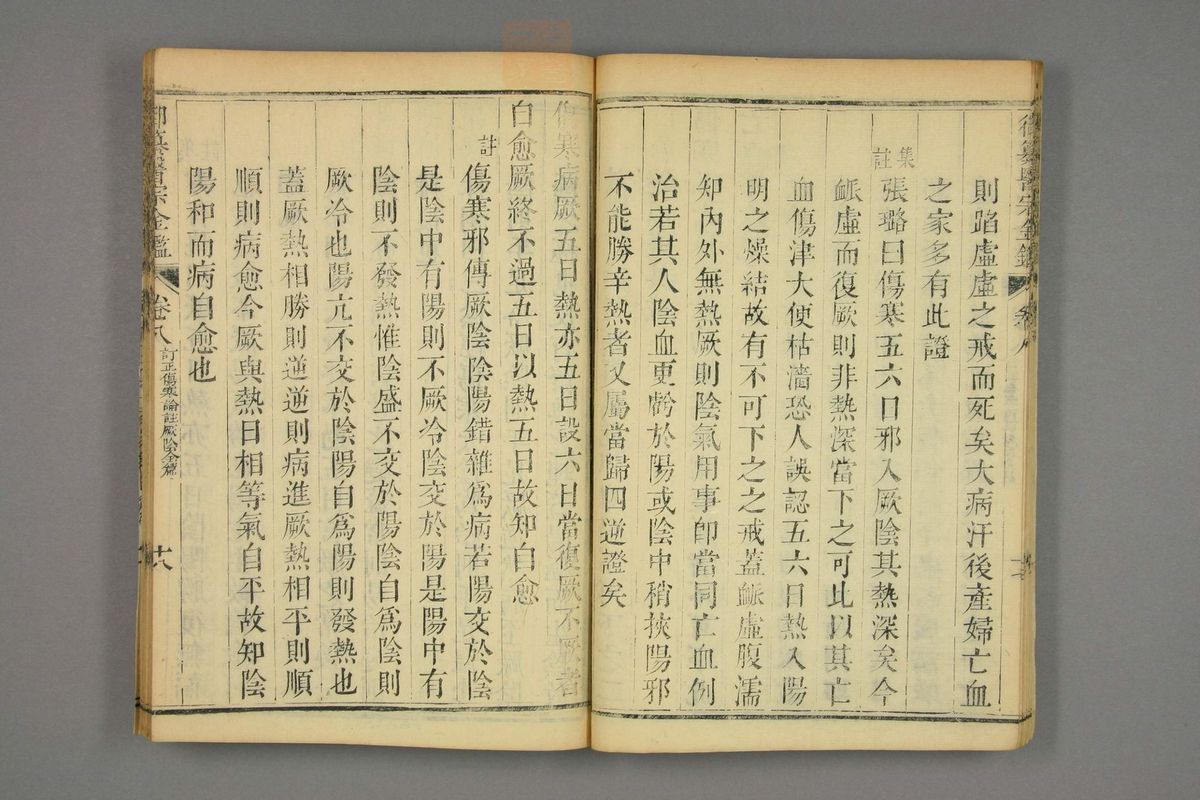 則蹈虛虛之戒而死矣大病汗後產婦亡血
之家多有此證
集註
張璐曰傷寒五六日邪入厥陰其熱深矣今
脈虛而復厥則非熱深當下之可此以其亡
血傷津大便枯濇恐人誤認五六日熱入陽
明之燥結故有不可下之之戒蓋脈虛腹濡
知內外無熱厥則陰氣用事卽當同亡血例
治若其人陰血更虧於陽或陰中稍挾陽邪
不能勝辛熱者又屬當歸四逆證矣
傷寒病厥五日熱亦五日設六日當復厥不厥者
自愈厥終不過五日以熱五日故知自愈
註
傷寒邪傳厥陰陰陽錯雜爲病若陽交於陰
是陰中有陽則不厥冷陰交於陽是陽中有
陰則不發熱惟陰盛不交於陽陰自爲陰則
厥冷也陽亢不交於陰陽自爲陽則發熱也
蓋厥熱相勝則逆逆則病進厥熱相平則順
順則病愈今厥與熱日相等氣自平故知陰
陽和而病自愈也
御纂醫宗金鑑
卷八
訂正傷寒論註厥陰全篇
十八